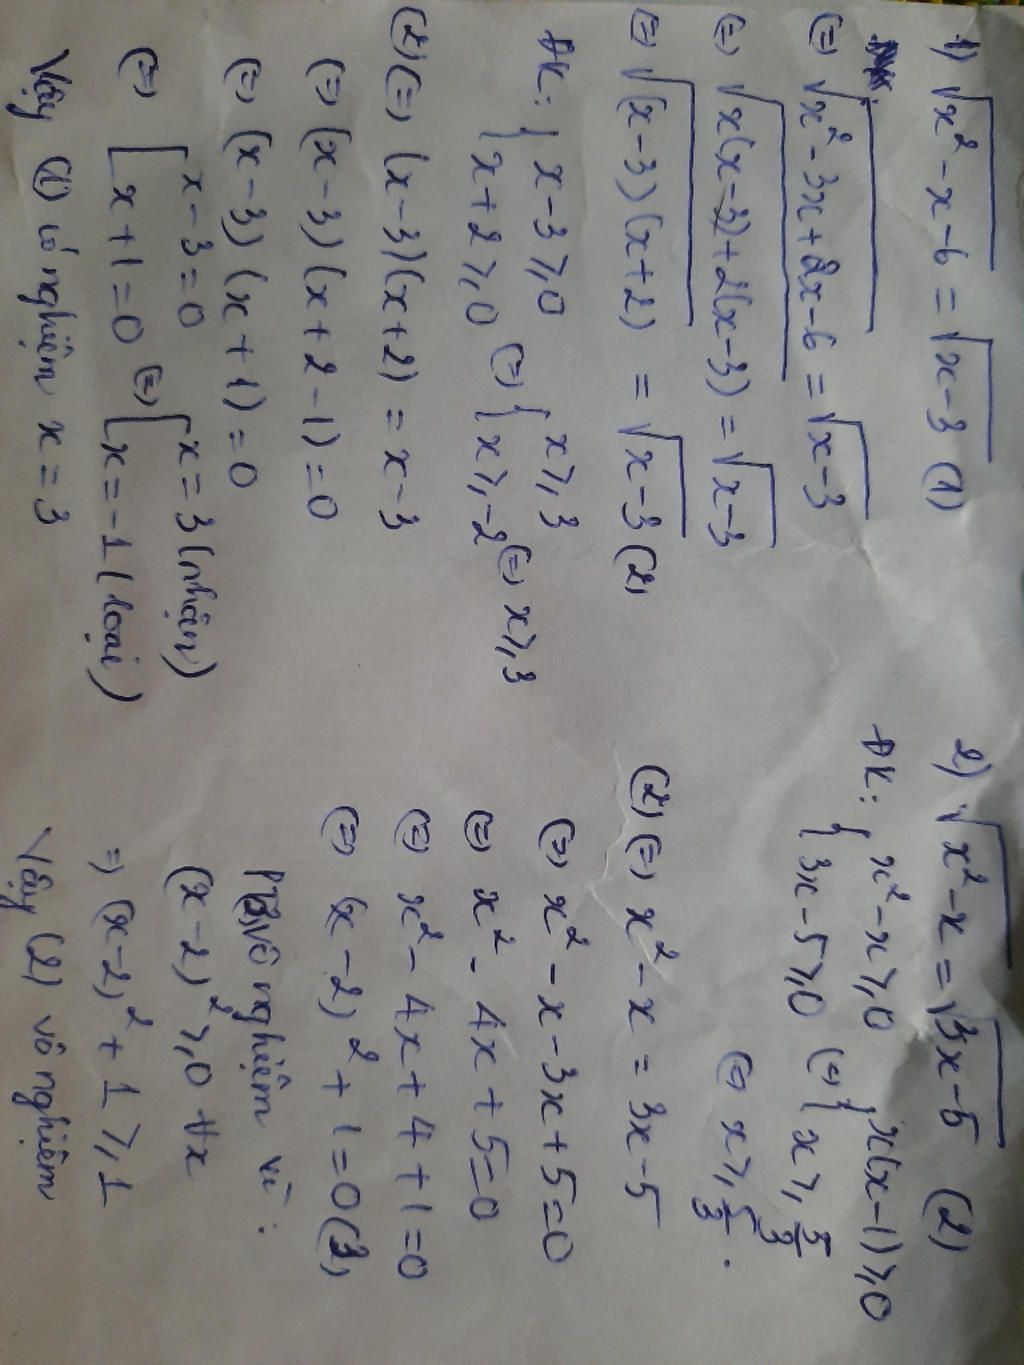 1) √(x² - x - 6) = √(x - 3) (1)
(=) √(x² - 3x + 2x - 6) = √(x - 3)
(=) √(x(x - 3) + 2(x - 3)) = √(x - 3)
(=) √((x - 3)(x + 2)) = √(x - 3) (2)
ĐK: { x - 3 ⩾ 0
x + 2 ⩾ 0 (=) { x ⩾ 3
x ⩾ -2 (=) x ⩾ 3
(2) (=) (x - 3)(x + 2) = x - 3
(=) (x - 3)(x + 2 - 1) = 0
(=) (x - 3)(x + 1) = 0
(=) [ x - 3 = 0
x + 1 = 0 (=) [ x = 3 (nhận)
x = -1 (loại)
Vậy (1) có nghiệm x = 3
2) √(x² - x) = √(3x - 5) (2)
ĐK: { x² - x ⩾ 0
3x - 5 ⩾ 0 (=) { x(x - 1) ⩾ 0
x ⩾ 5/3
(=) x ⩾ 5/3.
(2) (=) x² - x = 3x - 5
(=) x² - x - 3x + 5 = 0
(=) x² - 4x + 5 = 0
(=) x² - 4x + 4 + 1 = 0
(=) (x - 2)² + 1 = 0 (3)
PT(3) vô nghiệm vì :
(x - 2)² ⩾ 0 ∀x
=> (x - 2)² + 1 ⩾ 1
Vậy (2) vô nghiệm